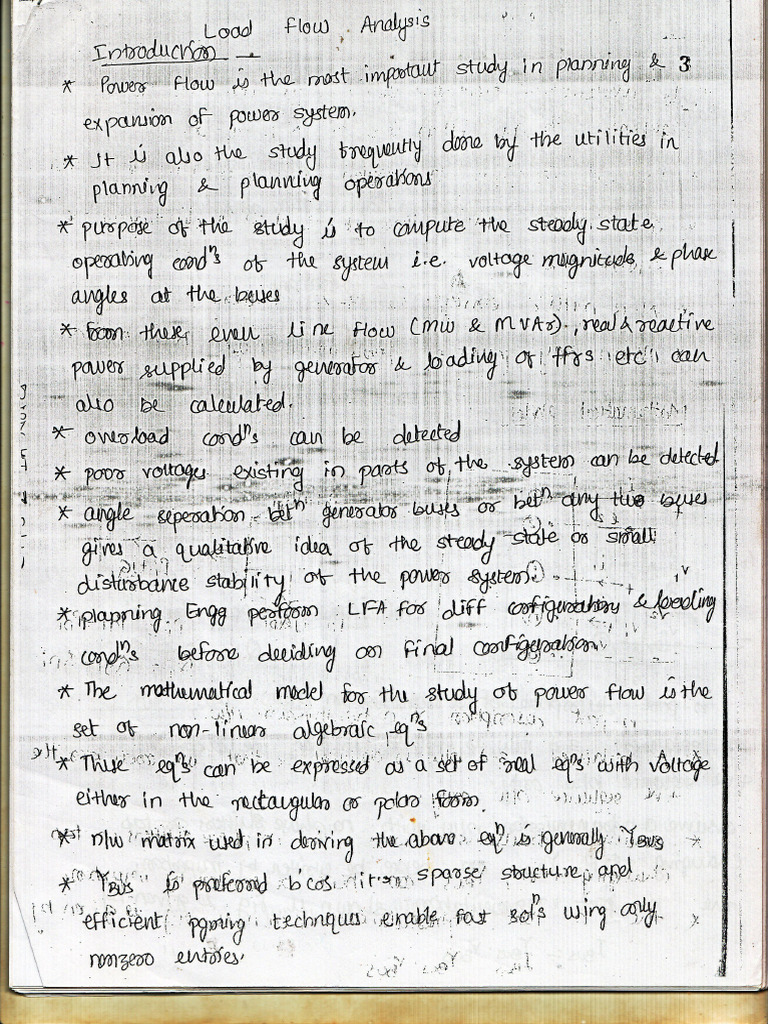 Load Flow Analysis
Introduction -
* Power flow is the most important study in planning & 3
expansion of power system.
* It is also the study frequently done by the utilities in
planning & planning operations
* purpose of the study is to compute the steady state
operating condⁿs of the system i.e. voltage magnitude & phase
angles at the buses
* from these even line flow (MW & MVAr), real & reactive
power supplied by generator & loading of tfrs etc can
also be calculated.
* overload condⁿs can be detected
* poor voltages existing in parts of the system can be detected
* angle seperation betⁿ generator buses or betⁿ any two buses
gives a qualitative idea of the steady state or small
disturbance stability of the power system.
* planning Engg perform LFA for diff configerations & loading
condⁿs before deciding on final configeration
* The mathematical model for the study of power flow is the
set of non-linear algebraic eqⁿs
* These eqⁿs can be expressed as a set of real eqⁿs with voltage
either in the rectangular or polar form.
* n/w matrix used in deriving the above eqⁿ is generally YBUS
* YBUS is preferred b'cos its sparse structure and
efficient pgming techniques enable fast solⁿs using only
nonzero entries.